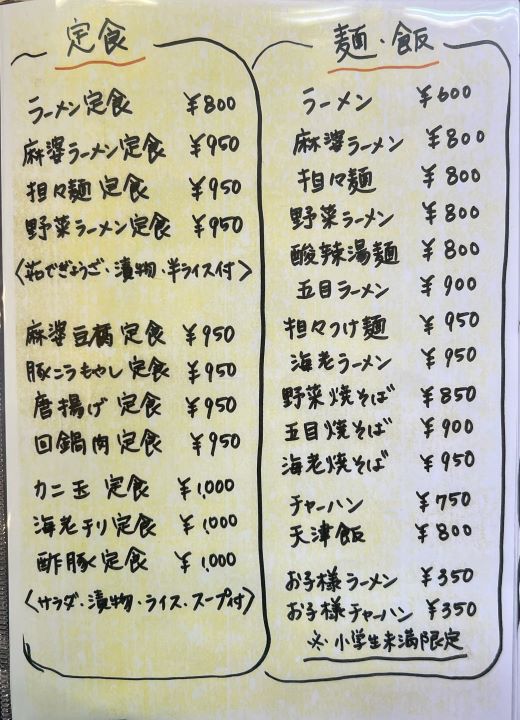 定食
ラーメン定食 ¥800
麻婆ラーメン定食 ¥950
担々麺定食 ¥950
野菜ラーメン定食 ¥950
〈茹でぎょうざ・漬物・半ライス付〉
麻婆豆腐定食 ¥950
豚ニラもやし定食 ¥950
唐揚げ定食 ¥950
回鍋肉定食 ¥950
カニ玉定食 ¥1,000
海老チリ定食 ¥1,000
酢豚定食 ¥1,000
〈サラダ・漬物・ライス・スープ付〉
麺・飯
ラーメン ¥600
麻婆ラーメン ¥800
担々麺 ¥800
野菜ラーメン ¥800
酸辣湯麺 ¥800
五目ラーメン ¥900
担々つけ麺 ¥950
海老ラーメン ¥950
野菜焼そば ¥850
五目焼そば ¥900
海老焼そば ¥950
チャーハン ¥750
天津飯 ¥800
お子様ラーメン ¥350
お子様チャーハン ¥350
※小学生未満限定